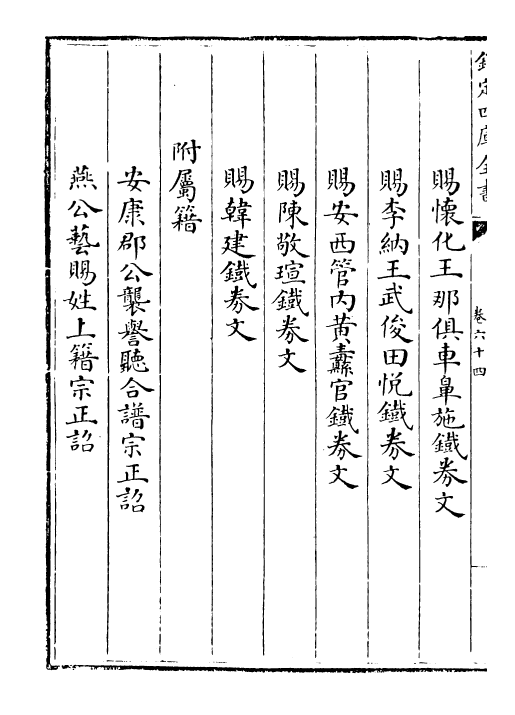 欽定四庫全書
卷六十四
賜懷化王那俱車鼻施鐵券文
賜李納王武俊田悅鐵券文
賜安西管内黄蘷官鐵券文
賜陳敬瑄鐵券文
賜韓建鐵券文
附屬籍
安康郡公襲譽聽合譜宗正詔
燕公藝賜姓上籍宗正詔